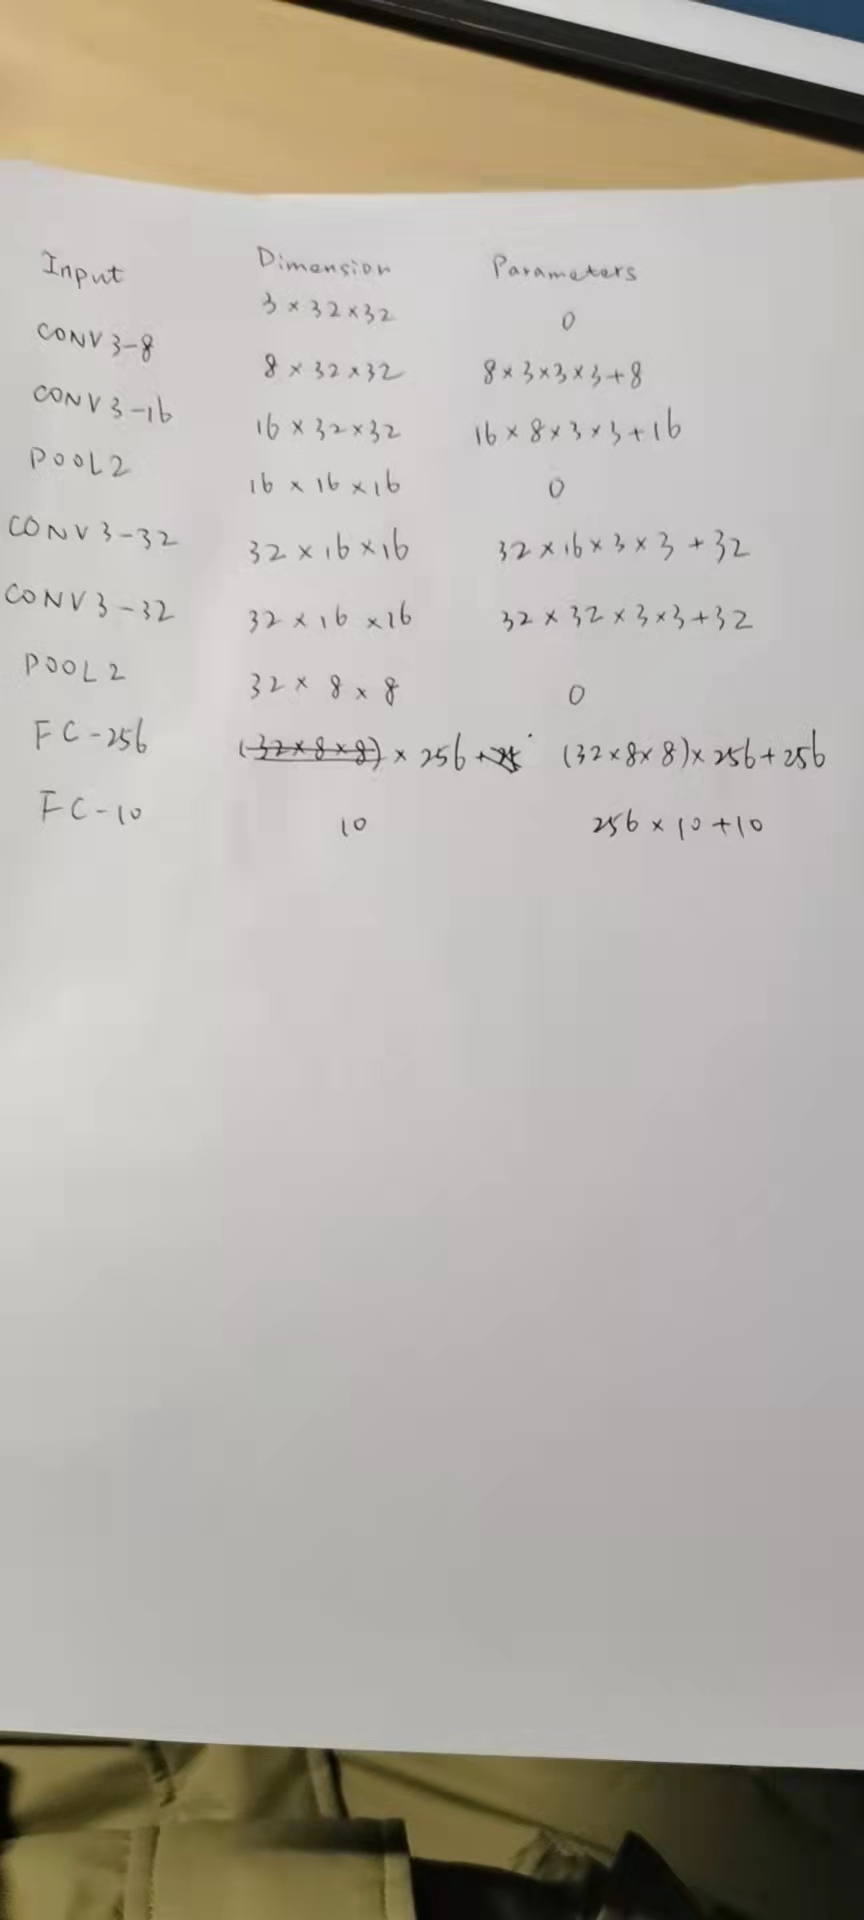 Input Dimension Parameters
3 × 32 × 32 0
CONV3-8 8 × 32 × 32 8 × 3 × 3 × 3 + 8
CONV3-16 16 × 32 × 32 16 × 8 × 3 × 3 + 16
POOL2 16 × 16 × 16 0
CONV3-32 32 × 16 × 16 32 × 16 × 3 × 3 + 32
CONV3-32 32 × 16 × 16 32 × 32 × 3 × 3 + 32
POOL2 32 × 8 × 8 0
FC-256 (32 × 8 × 8) × 256 + (32 × 8 × 8) × 256 + 256
FC-10 10 256 × 10 + 10